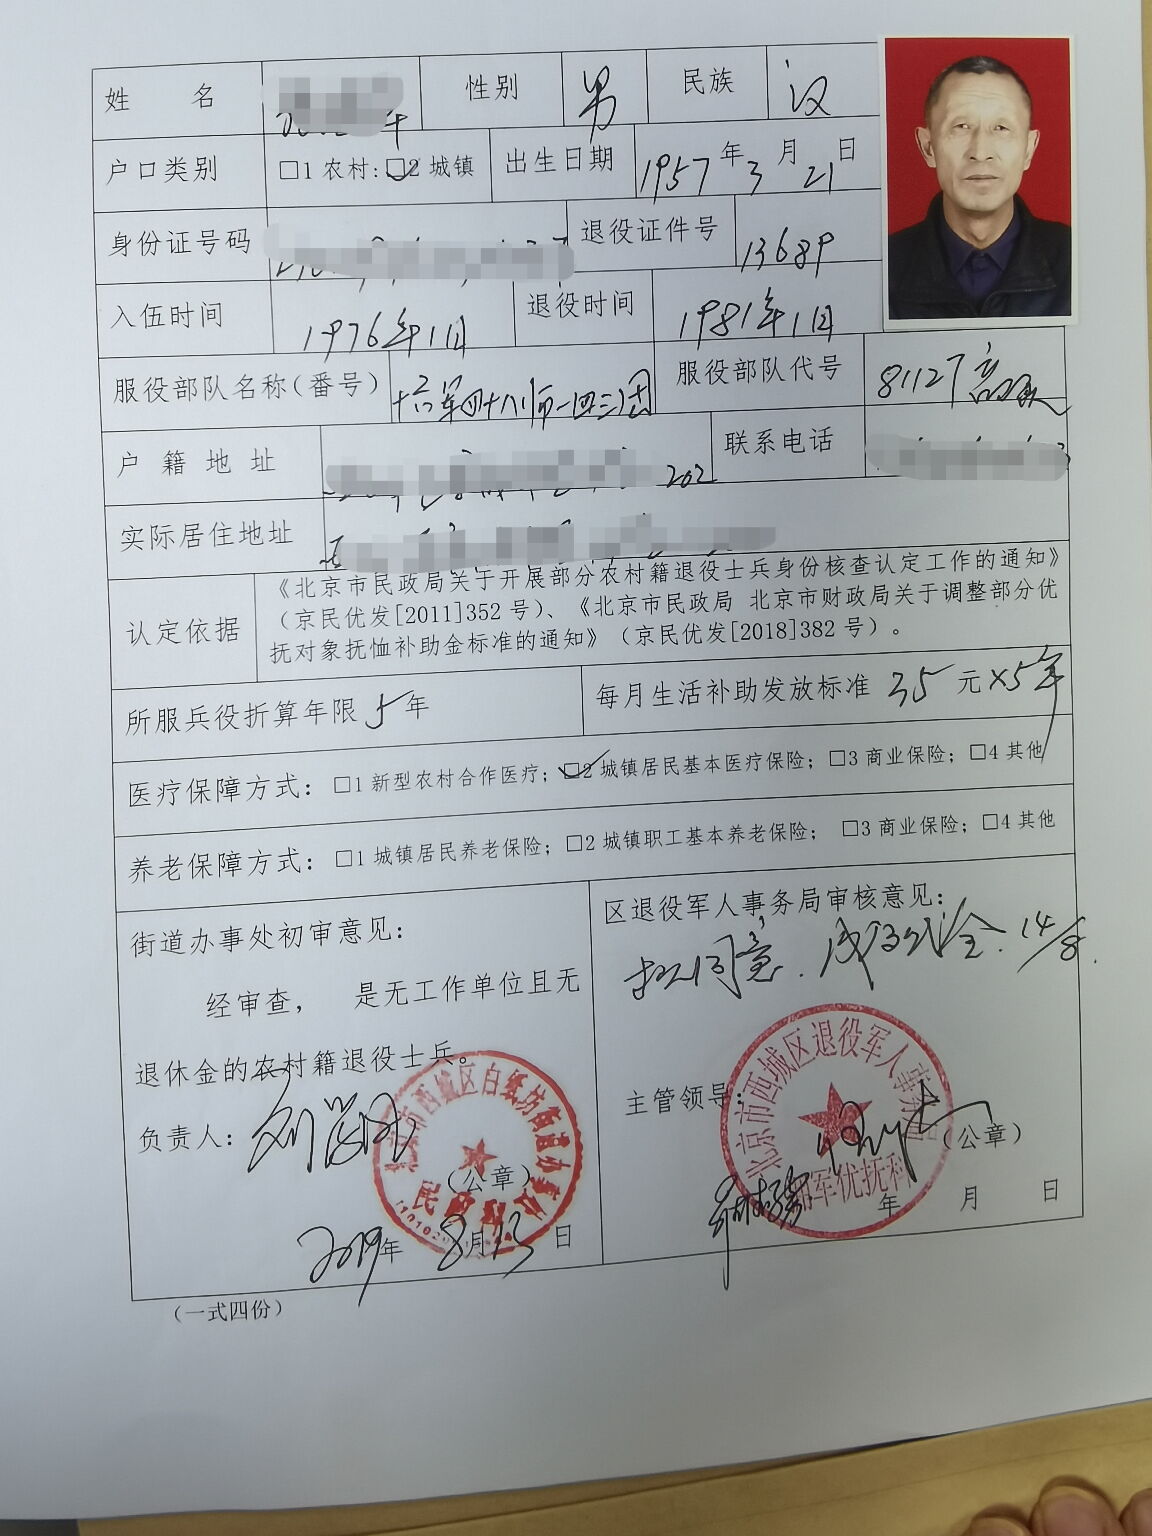 姓 名 性别 男 民族 汉
户口类别 □1 农村: □2 城镇 出生日期 1957 年 3 月 21 日
身份证号码 退役证件号 13689
入伍时间 1976年1月 退役时间 1981年1月
服役部队名称(番号) 十六军四十八师一四三团 服役部队代号 81127
户籍地址 202 联系电话
实际居住地址
《北京市民政局关于开展部分农村籍退役士兵身份核查认定工作的通知》
认定依据 (京民优发[2011]352 号)、《北京市民政局 北京市财政局关于调整部分优
抚对象抚恤补助金标准的通知》(京民优发[2018]382 号)。
所服兵役折算年限 5 年 每月生活补助发放标准 35 元 ×5年
医疗保障方式: □1 新型农村合作医疗; □2 城镇居民基本医疗保险; □3 商业保险; □4 其他
养老保障方式: □1 城镇居民养老保险; □2 城镇职工基本养老保险; □3 商业保险; □4 其他
街道办事处初审意见:
经审查, 是无工作单位且无
退休金的农村籍退役士兵。
负责人:
(公章)
2019年 8月13日
北京市西城区白纸坊街道办事处
区退役军人事务局审核意见:
拟同意. 14/8.
主管领导:
(公章)
年 月 日
北京市西城区退役军人事务局
拥军优抚科
(一式四份)